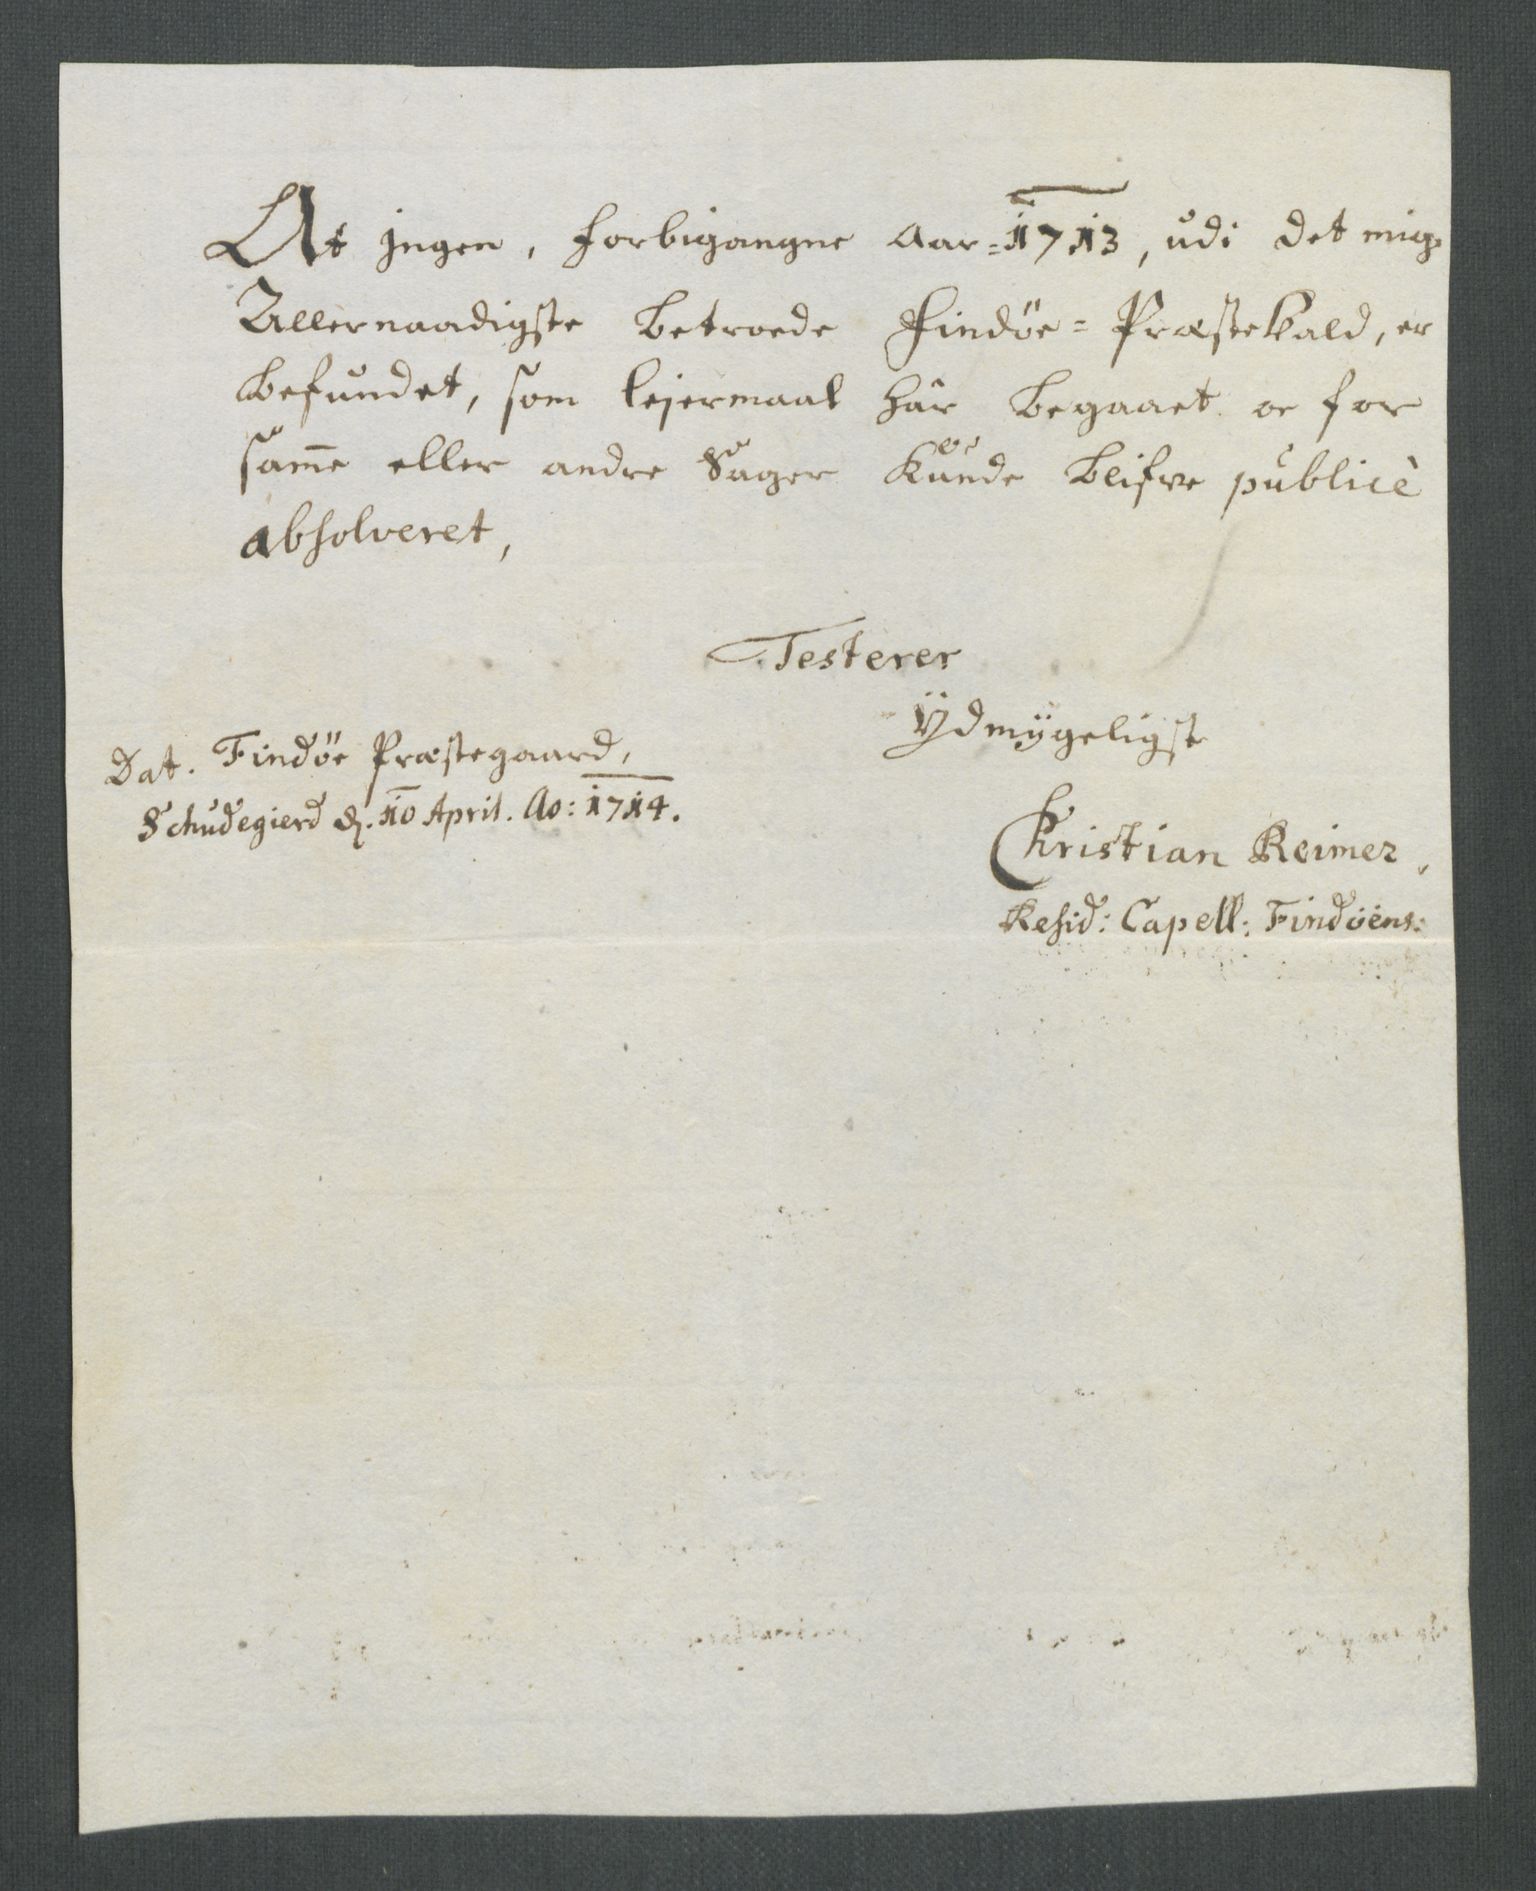 At jngen, forbigangne Aar=1713, udi det mig
Allernaadigste betroede Findöe=Præstekald, er
befundet, som lejermaal har begaaet oc for
samme eller andre Sager kunde blifve publicè
absolveret,
Testerer
Ydmÿgeligst
Dat. Findöe Præstegaard,
Schudegierd d. 10 April. Ao: 1714.
Christian Reimer,
Resid: Capell: Findöens: